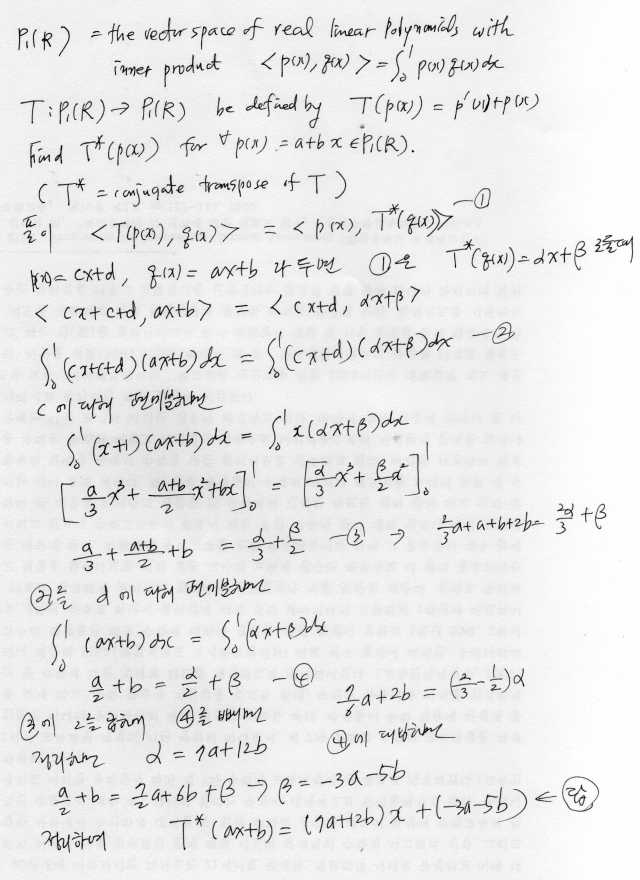 P₁(R) = the vector space of real linear polynomials with
inner product <p(x), q(x)> = ∫₀¹ p(x)q(x)dx
T: P₁(R) → P₁(R) be defined by T(p(x)) = p'(x)+p(x)
Find T*(p(x)) for ∀p(x) = a+bx ∈ P₁(R).
( T* = conjugate transpose of T )
풀이 <T(p(x)), q(x)> = <p(x), T*(q(x))> —①
p(x)= cx+d, q(x)= ax+b 라 두면 ①은 T*(q(x))=αx+β
< cx+c+d, ax+b > = < cx+d, αx+β >
∫₀¹(cx+c+d)(ax+b)dx = ∫₀¹(cx+d)(αx+β)dx —②
c에 대해 편미분하면
∫₀¹(x+1)(ax+b)dx = ∫₀¹ x(αx+β)dx
[a/3 x³ + (a+b)/2 x²+bx]₀¹ = [α/3 x³ + β/2 x²]₀¹
a/3 + (a+b)/2 + b = α/3 + β/2 —③ → 2/3 a+a+b+2b = 2α/3 + β
②를 d에 대해 편미분하면
∫₀¹(ax+b)dx = ∫₀¹(αx+β)dx
a/2 + b = α/2 + β —④ 7/6 a+2b = (2/3 - 1/2)α
③에 2를 곱하여 ④를 빼면
정리하면 α = 7a+12b ④에 대입하면
a/2 + b = 7/2 a+6b+β → β = -3a-5b
정리하여 T*(ax+b) = (7a+12b)x+(-3a-5b) ← 답